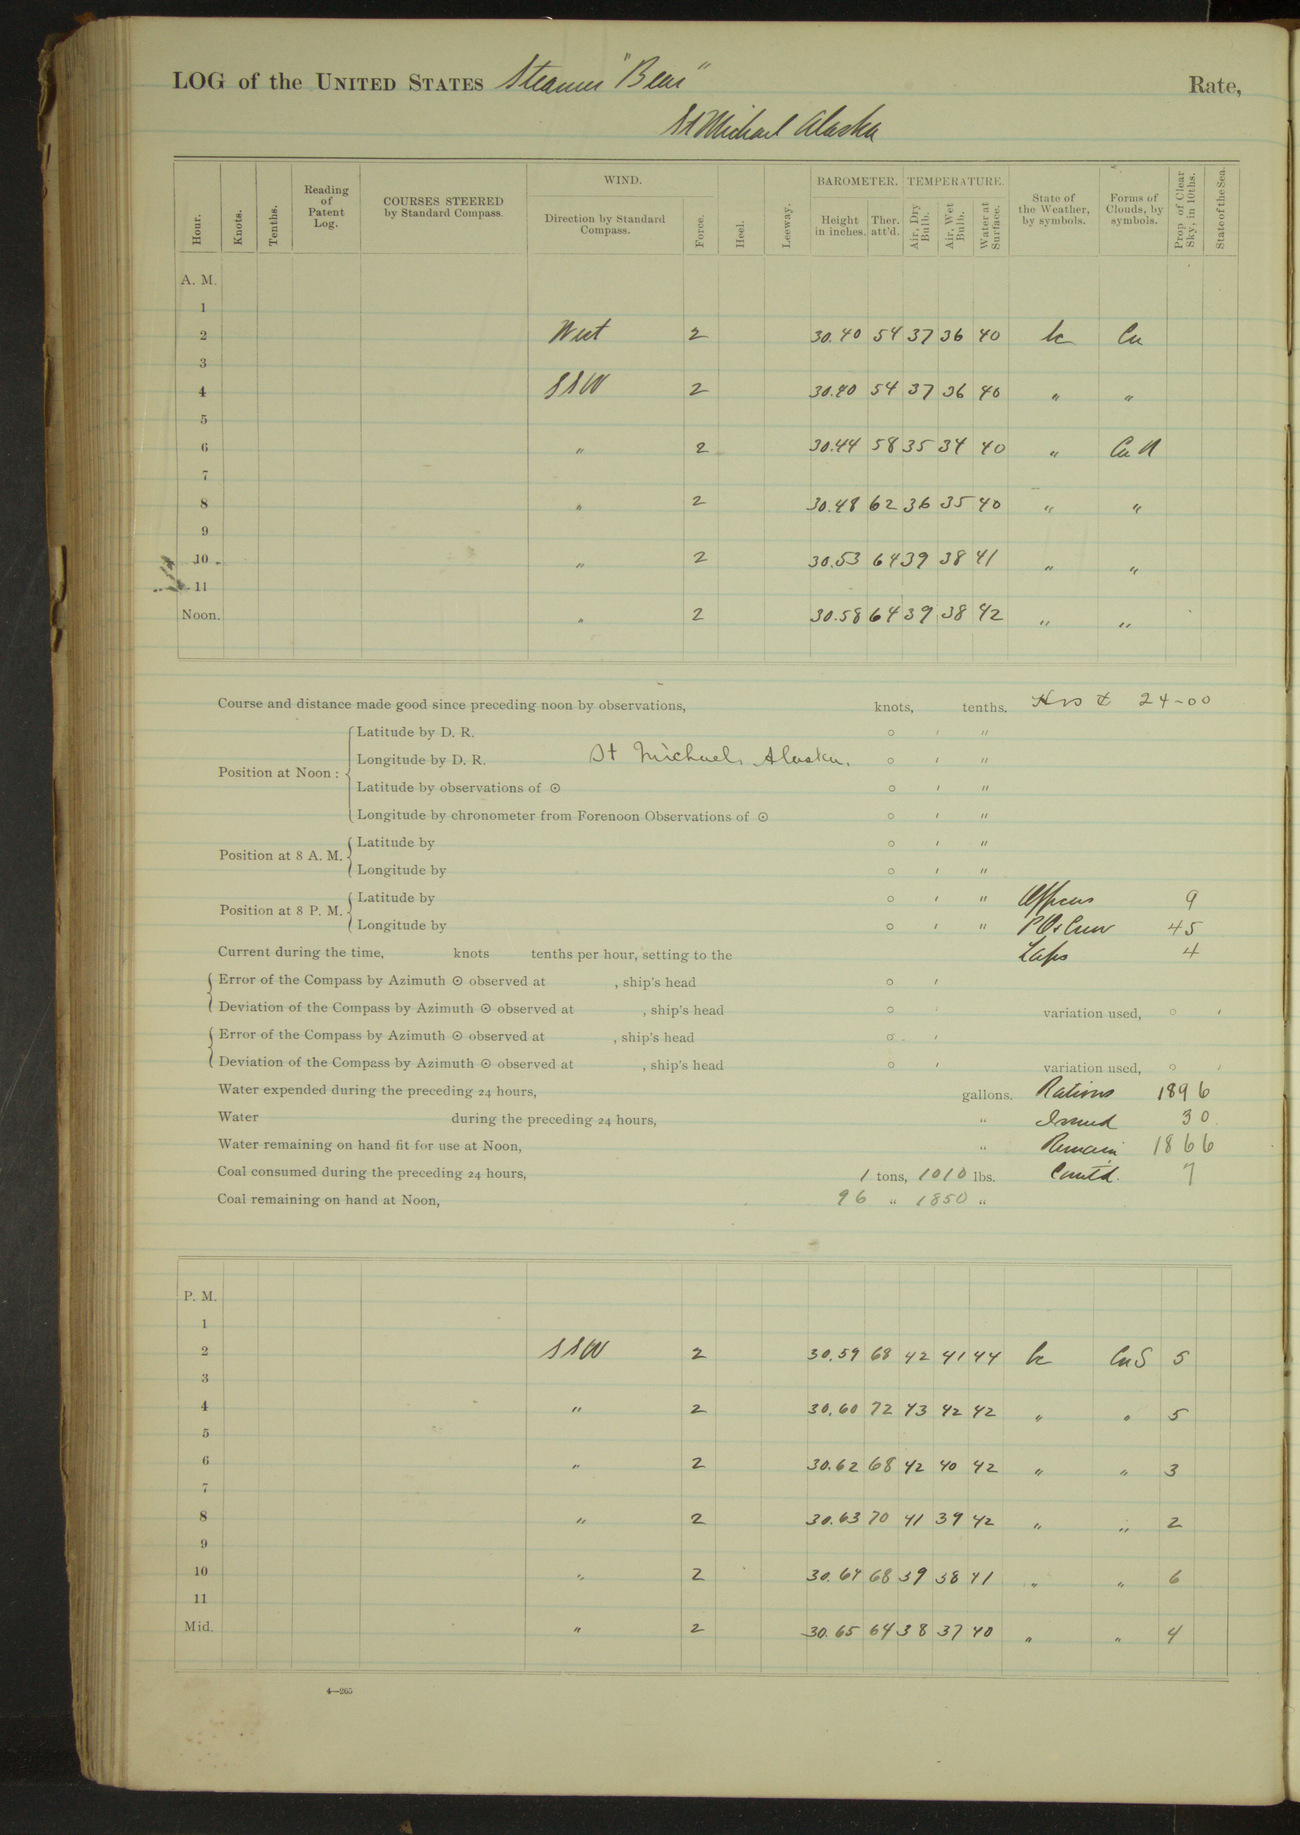 LOG of the UNITED STATES Steamer "Bear" Rate,
St Michael Alaska
Hour. Knots. Tenths. Reading of Patent Log. COURSES STEERED by Standard Compass. WIND. Direction by Standard Compass. Force. Heel. Leeway. BAROMETER. Height in inches. Ther. att'd. TEMPERATURE. Air, Dry Bulb. Air, Wet Bulb. Water at Surface. State of the Weather, by symbols. Forms of Clouds, by symbols. Prop. of Clear Sky, in 10ths. State of the Sea.
A. M.
1
2 West 2 30.40 54 37 36 40 bc Cu
3
4 SSW 2 30.40 54 37 36 40 " "
5
6 " 2 30.44 58 35 34 40 " Cu N
7
8 " 2 30.48 62 36 35 40 " "
9
10 " 2 30.53 64 39 38 41 " "
11
Noon. " 2 30.58 64 39 38 42 " "
Course and distance made good since preceding noon by observations, knots, tenths. 24-00
Position at Noon: Latitude by D. R. ° ' "
Longitude by D. R. St Michael, Alaska. ° ' "
Latitude by observations of ⊙ ° ' "
Longitude by chronometer from Forenoon Observations of ⊙ ° ' "
Position at 8 A. M. Latitude by ° ' "
Longitude by ° ' "
Position at 8 P. M. Latitude by ° ' " Officers 9
Longitude by ° ' " P.Os Crew 45
Current during the time, knots tenths per hour, setting to the 4
Error of the Compass by Azimuth ⊙ observed at , ship's head ° '
Deviation of the Compass by Azimuth ⊙ observed at , ship's head ° ' variation used, ° '
Error of the Compass by Azimuth ⊙ observed at , ship's head ° '
Deviation of the Compass by Azimuth ⊙ observed at , ship's head ° ' variation used, ° '
Water expended during the preceding 24 hours, gallons. Rations 1896
Water during the preceding 24 hours, " Issued 30
Water remaining on hand fit for use at Noon, " Remain 1866
Coal consumed during the preceding 24 hours, 1 tons, 1010 lbs. Com'td. 7
Coal remaining on hand at Noon, 96 " 1850 "
P. M.
1
2 SSW 2 30.59 68 42 41 44 bc CuS 5
3
4 " 2 30.60 72 43 42 42 " " 5
5
6 " 2 30.62 68 42 40 42 " " 3
7
8 " 2 30.63 70 41 39 42 " " 2
9
10 " 2 30.64 68 39 38 41 " " 6
11
Mid. " 2 30.65 64 38 37 40 " " 4
4—265